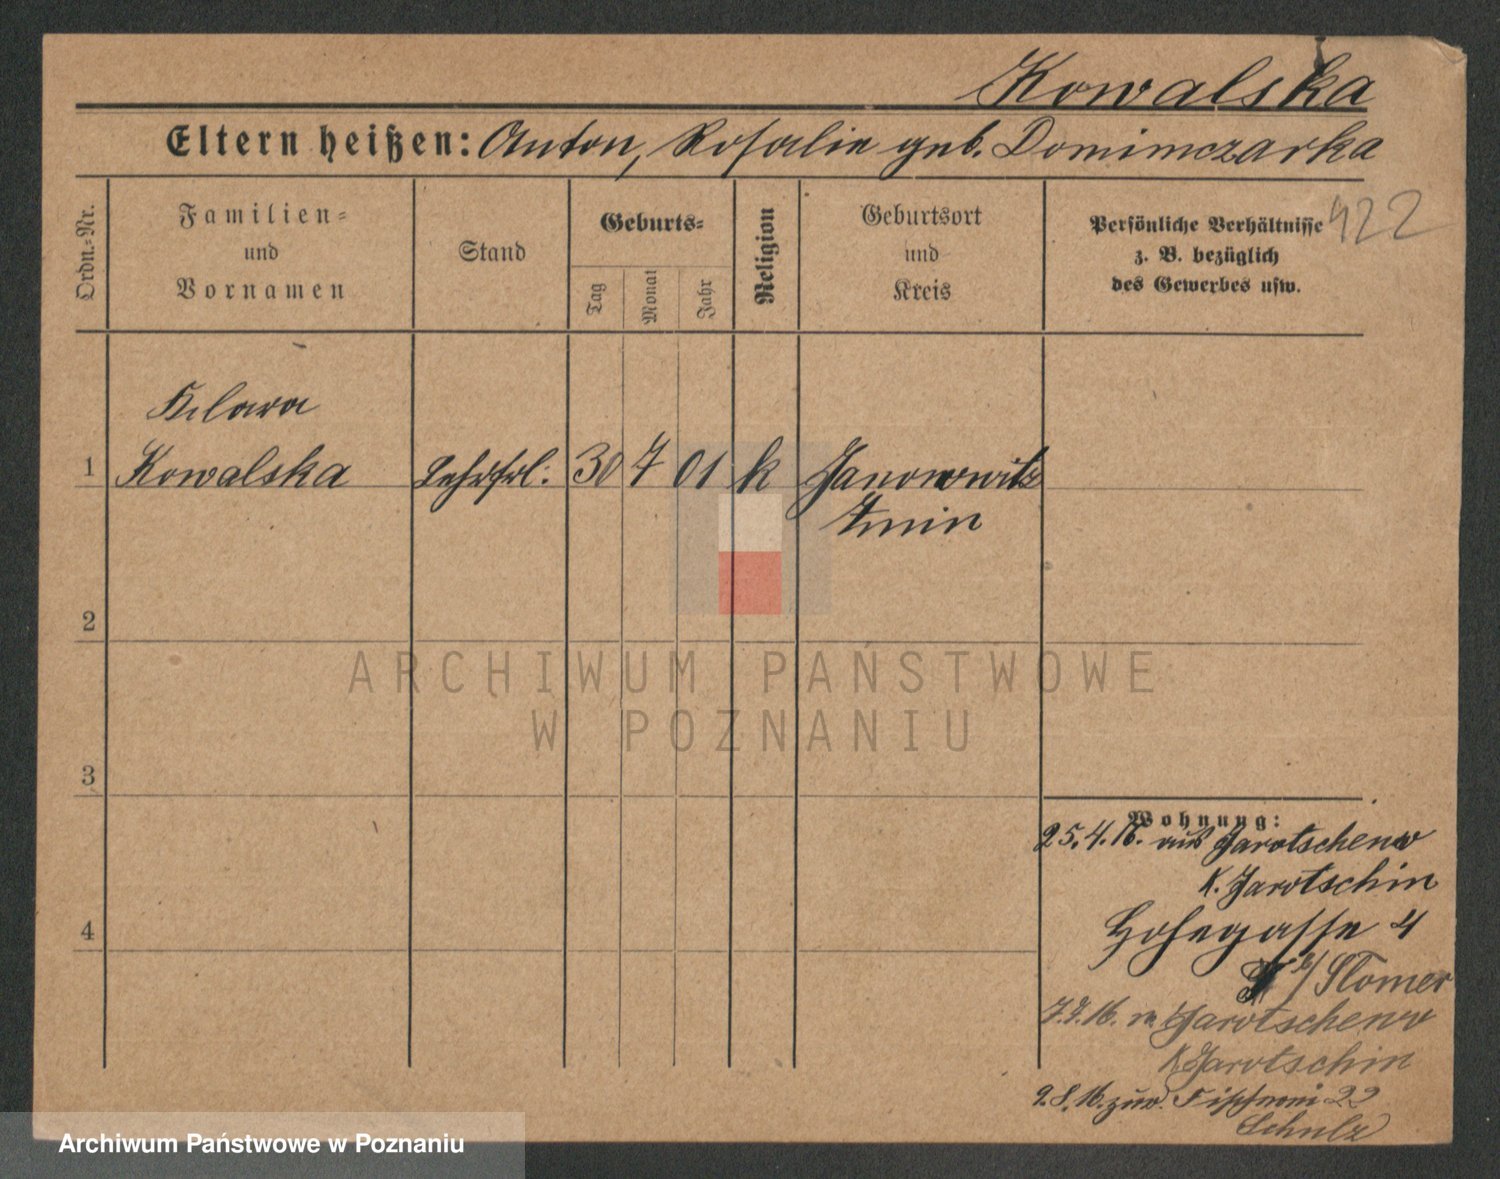 Kowalska
Eltern heißen: Anton, Rosalie geb. Dominiczarka
Ordn.-Nr.
Familien-
und
Vornamen
Stand
Geburts-
Tag
Monat
Jahr
Religion
Geburtsort
und
Kreis
Persönliche Verhältnisse
z. B. bezüglich
des Gewerbes usw.
422
Klara
1 Kowalska Lehrfrl. 30 7 01 k Janowwitz
Znin
2
3
4
Wohnung:
25.4.16. aus Jarotschew
K. Jarotschin
Hohegasse 4
b/ Stomer
7.7.16. n. Jarotschew
K Jarotschin
9.8.16. zur. Fischerei 22
Schulz
ARCHIWUM PAŃSTWOWE
W POZNANIU
Archiwum Państwowe w Poznaniu